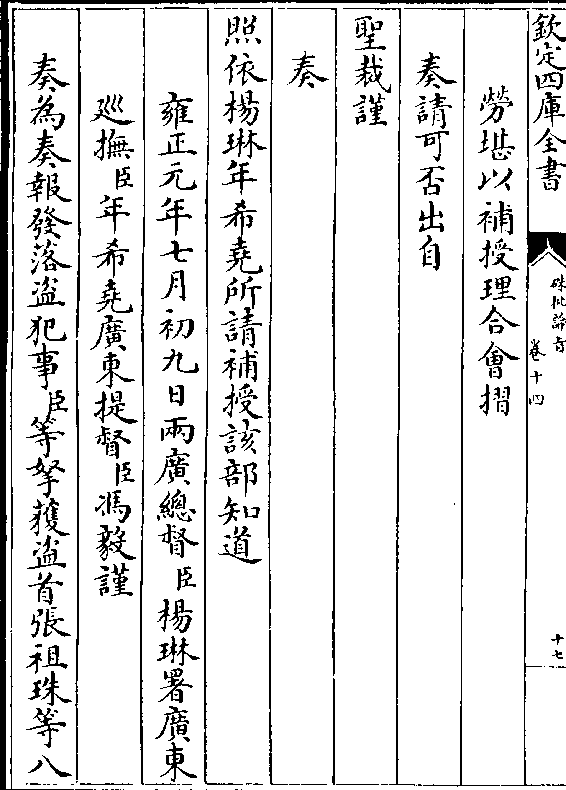 欽定四庫全書
硃批諭旨
卷十四
十七
勞堪以補授理合會摺
奏請可否出自
聖裁謹
奏
照依楊琳年希堯所請補授該部知道
雍正元年七月初九日兩廣總督臣楊琳署廣東
巡撫臣年希堯廣東提督臣馮毅謹
奏為奏報發落盜犯事臣等拏獲盜首張祖珠等八